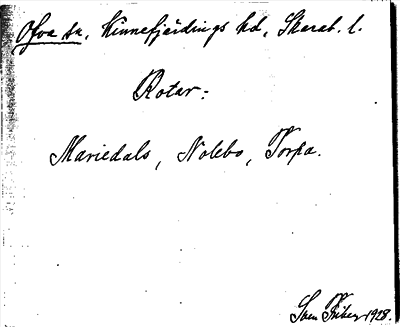 Ova sn. Kinnefjärdings hd, Skarab. l.
Rotar:
Mariedals, Nolebo, Torpa.
Sven Friberg 1928.